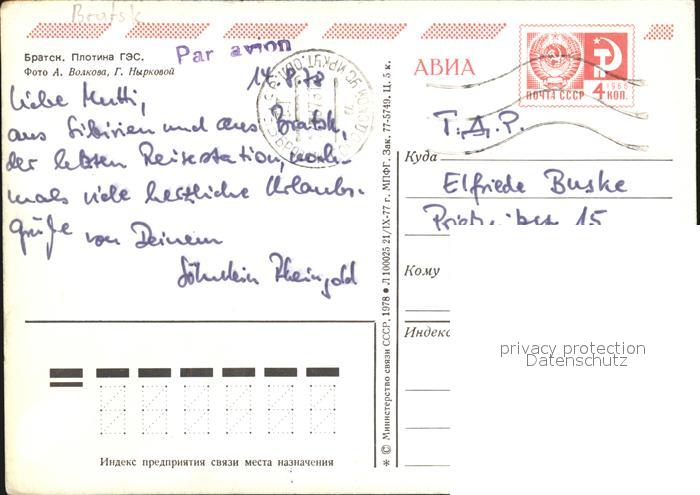 Bratsk
Братск. Плотина ГЭС.
Фото А. Волкова, Г. Нырковой
Par avion
14.8.78
Liebe Mutti,
aus Sibirien und aus Bratsk,
der letzten Reisestation, noch-
mals viele herzliche Urlaubs-
grüße von Deinem
Söhnlein Rheingold
АВИА
ПОЧТА СССР
1966
4 КОП.
Г.Д.Р.
Куда
Elfriede Buske
15
Кому
Индекс
privacy protection
Datenschutz
* © Министерство связи СССР, 1978 ● Л 100025 21/IX-77 г. МПФГ. Зак. 77-5749. Ц. 5 к.
Индекс предприятия связи места назначения